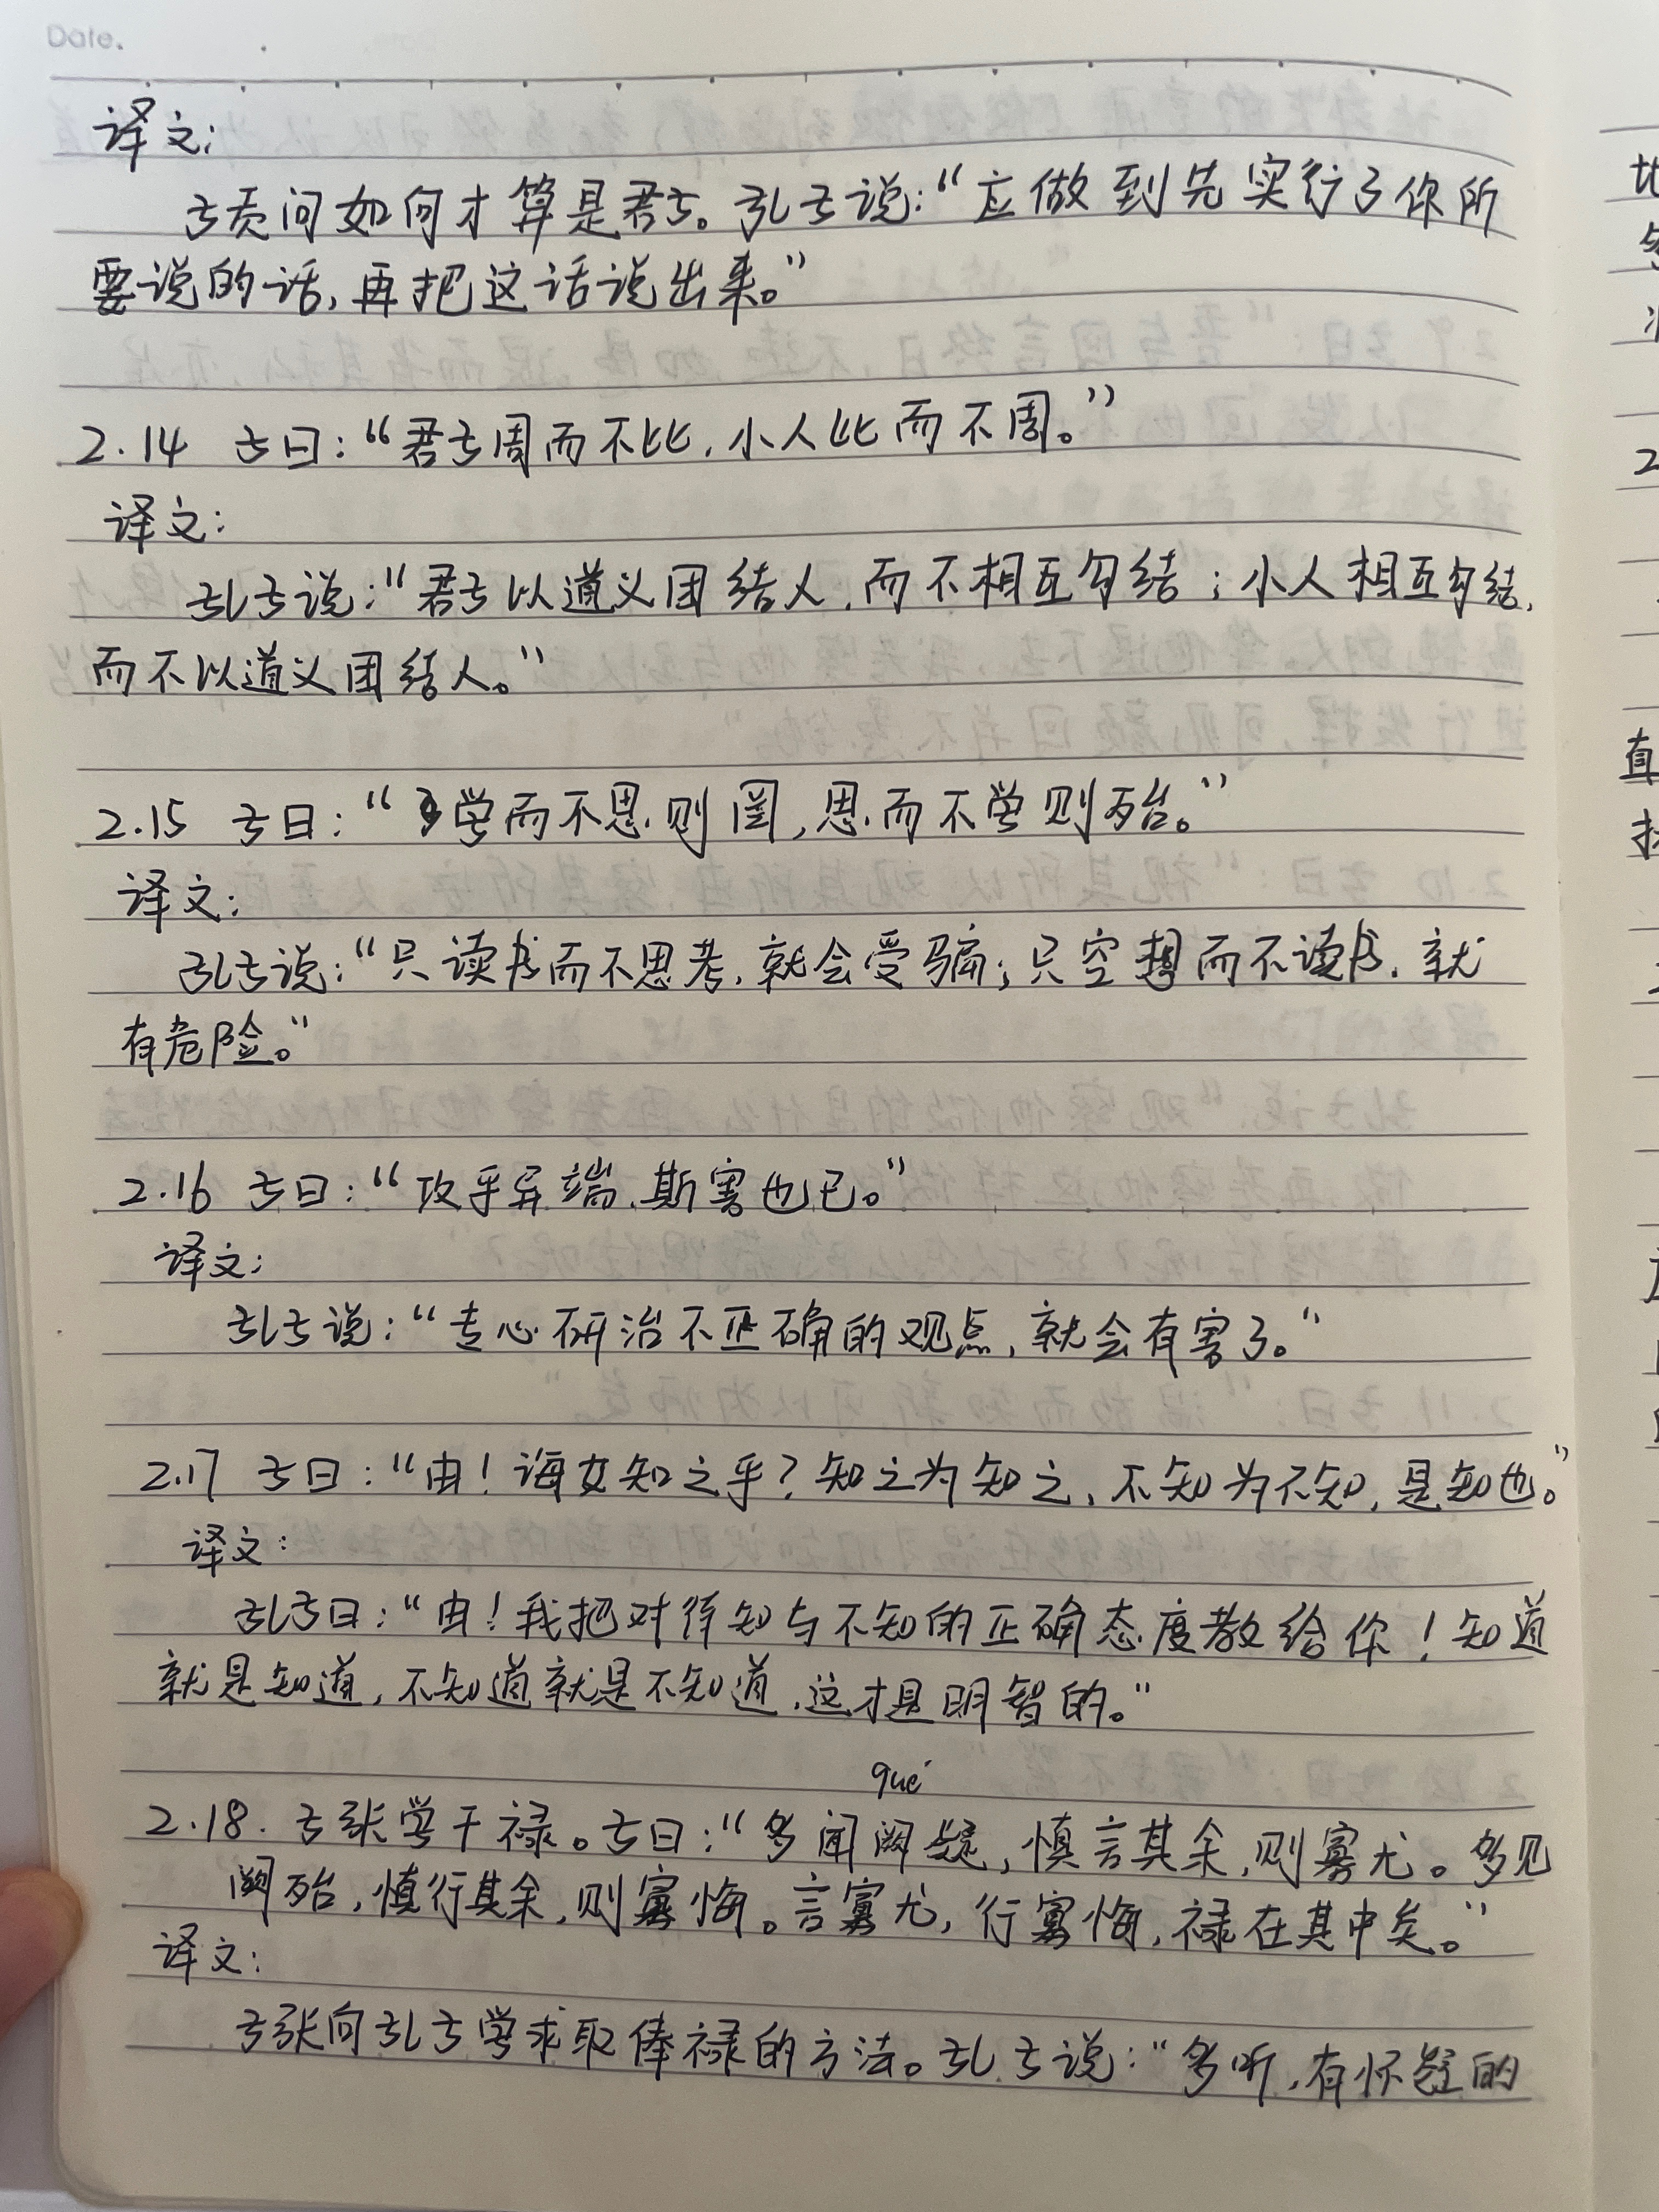 Date.
译文:
子贡问如何才算是君子。孔子说:“应做到先实行了你所
要说的话,再把这话说出来。”
2.14 子曰:“君子周而不比,小人比而不周。”
译文:
孔子说:“君子以道义团结人,而不相互勾结;小人相互勾结,
而不以道义团结人。”
2.15 子曰:“学而不思则罔,思而不学则殆。”
译文:
孔子说:“只读书而不思考,就会受骗;只空想而不读书,就
有危险。”
2.16 子曰:“攻乎异端,斯害也已。”
译文:
孔子说:“专心研治不正确的观点,就会有害了。”
2.17 子曰:“由!诲女知之乎?知之为知之,不知为不知,是知也。”
译文:
孔子曰:“由!我把对待知与不知的正确态度教给你!知道
就是知道,不知道就是不知道,这才是明智的。”
que
2.18. 子张学干禄。子曰:“多闻阙疑,慎言其余,则寡尤。多见
阙殆,慎行其余,则寡悔。言寡尤,行寡悔,禄在其中矣。”
译文:
子张向孔子学求取俸禄的方法。孔子说:“多听,有怀疑的